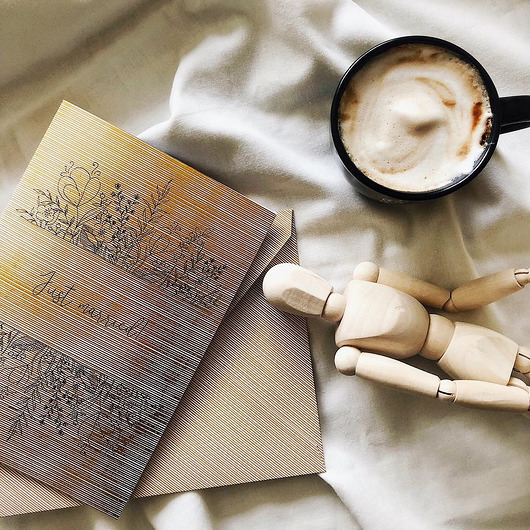 Just married